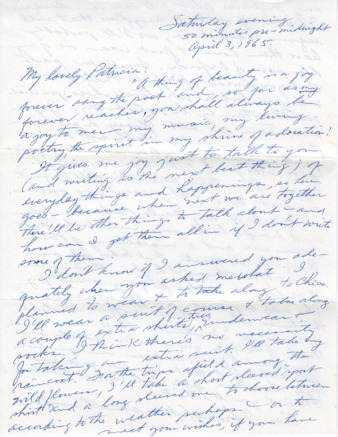 Saturday evening
50 minutes pre-midnight
April 3, 1965
My lovely Patricia:
"A thing of beauty is a joy
forever" sang the poet and, so far as my
forever reaches, you shall always be
a joy to me - my music, my living
poetry, the spirit in my shrine of adoration!
It gives me joy just to talk to you
(and writing is the next best thing) of
everyday things and happenings, so here
goes - because when next we are together
there'll be other things to talk about - and
how can I get them all in if I don't write
some of them.
I don't know if I answered you ade-
quately when you asked me what I
planned to wear & to take along to
I'll wear a suit of course & take along
a couple of extra shirts, ties, underwear &
socks. I think there's no necessity
for taking an extra suit. I'll take my
raincoat. For the trips afield among the
wildflowers, I'll take a short sleeved sport
shirt and a long sleeved one, to choose between
according to the weather perhaps - or to
meet your wishes, if you have